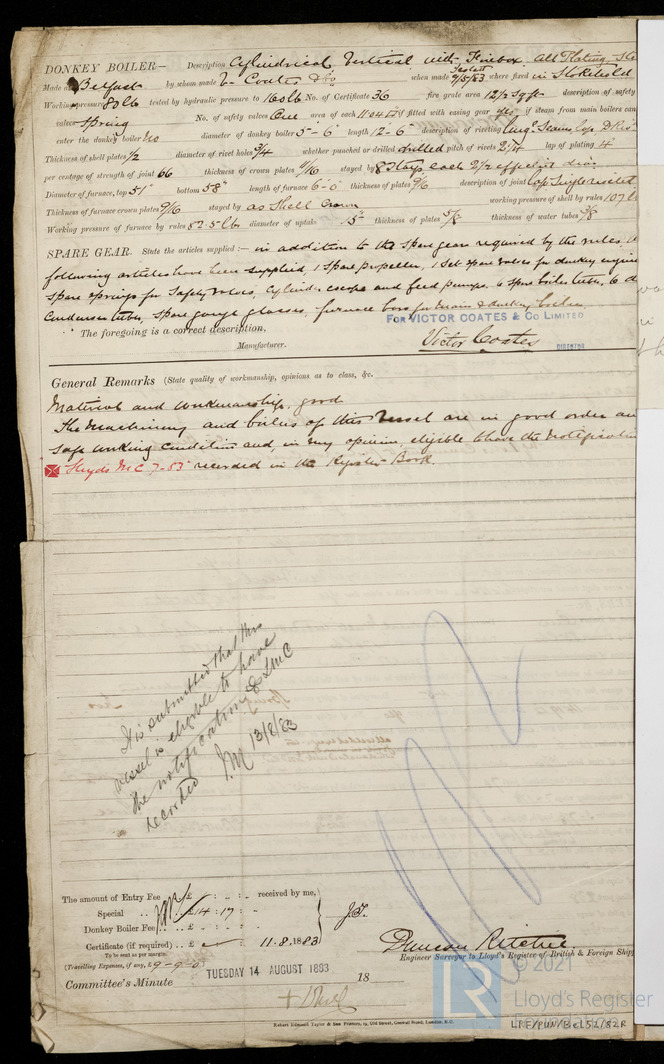 DONKEY BOILER— Description Cylindrical Vertical with Firebox all Plating
Made at Belfast by whom made V. Coates & Co when made Tested 9/5/83 where fixed in Stokehold
Working pressure 80 lb tested by hydraulic pressure to 160 lb No. of Certificate 36 fire grate area 12½ Sq ft description of safety
valves Spring No. of safety valves One area of each 11.04 if fitted with easing gear yes if steam from main boilers can
enter the donkey boiler No diameter of donkey boiler 5-6 length 12-6 description of riveting Long. Seams lap D Riv
Thickness of shell plates 1/2 diameter of rivet holes 3/4 whether punched or drilled drilled pitch of rivets 2¼ lap of plating 4
per centage of strength of joint 66 thickness of crown plates 9/16 stayed by 8 Stays each 2½ effective diar
Diameter of furnace, top 51" bottom 58" length of furnace 6-0 thickness of plates 9/16 description of joint lap Single rivetted
Thickness of furnace crown plates 9/16 stayed by as Shell Crown working pressure of shell by rules 107 lb
Working pressure of furnace by rules 82.5 lb diameter of uptake 15" thickness of plates 5/8 thickness of water tubes 3/8
SPARE GEAR. State the articles supplied :— in addition to the Spare gear required by the rules,
following articles have been supplied, 1 Spare propeller, 1 Set spare valves for donkey engine
Spare springs for Safety valves, Cylinder escape and feed pumps. 6 spare boiler tubes, 6
Condenser tubes, Spare gauge glasses, furnace bars for main & donkey boiler.
The foregoing is a correct description,
FOR VICTOR COATES & CO LIMITED
Manufacturer. Victor Coates DIRECTOR
General Remarks (State quality of workmanship, opinions as to class, &c.
Material and workmanship, good
The Machinery and boilers of this Vessel are in good order and
safe working condition and, in my opinion, eligible to have the notification
Lloyds M C 7-83 recorded in the Register Book
It is submitted that this
vessel is eligible to have
the notification LMC
recorded
JM 13/8/83
The amount of Entry Fee .. £ : : received by me,
Special .. .. £14 : 17 :
Donkey Boiler Fee .. .. £ : :
Certificate (if required) .. £ : 11.8.1883
To be sent as per margin.
(Travelling Expenses, if any, £ 9-9-0
Duncan Ritchie
Engineer Surveyor to Lloyd's Register of British & Foreign Ship
TUESDAY 14 AUGUST 1883
Committee's Minute 18
Robert Edmund Taylor & Son Printers, 19, Old Street, Goswell Road, London, E.C.
© 2021
LR
Lloyd's Register
Foundation
LRF/PUN/Bel52/82R